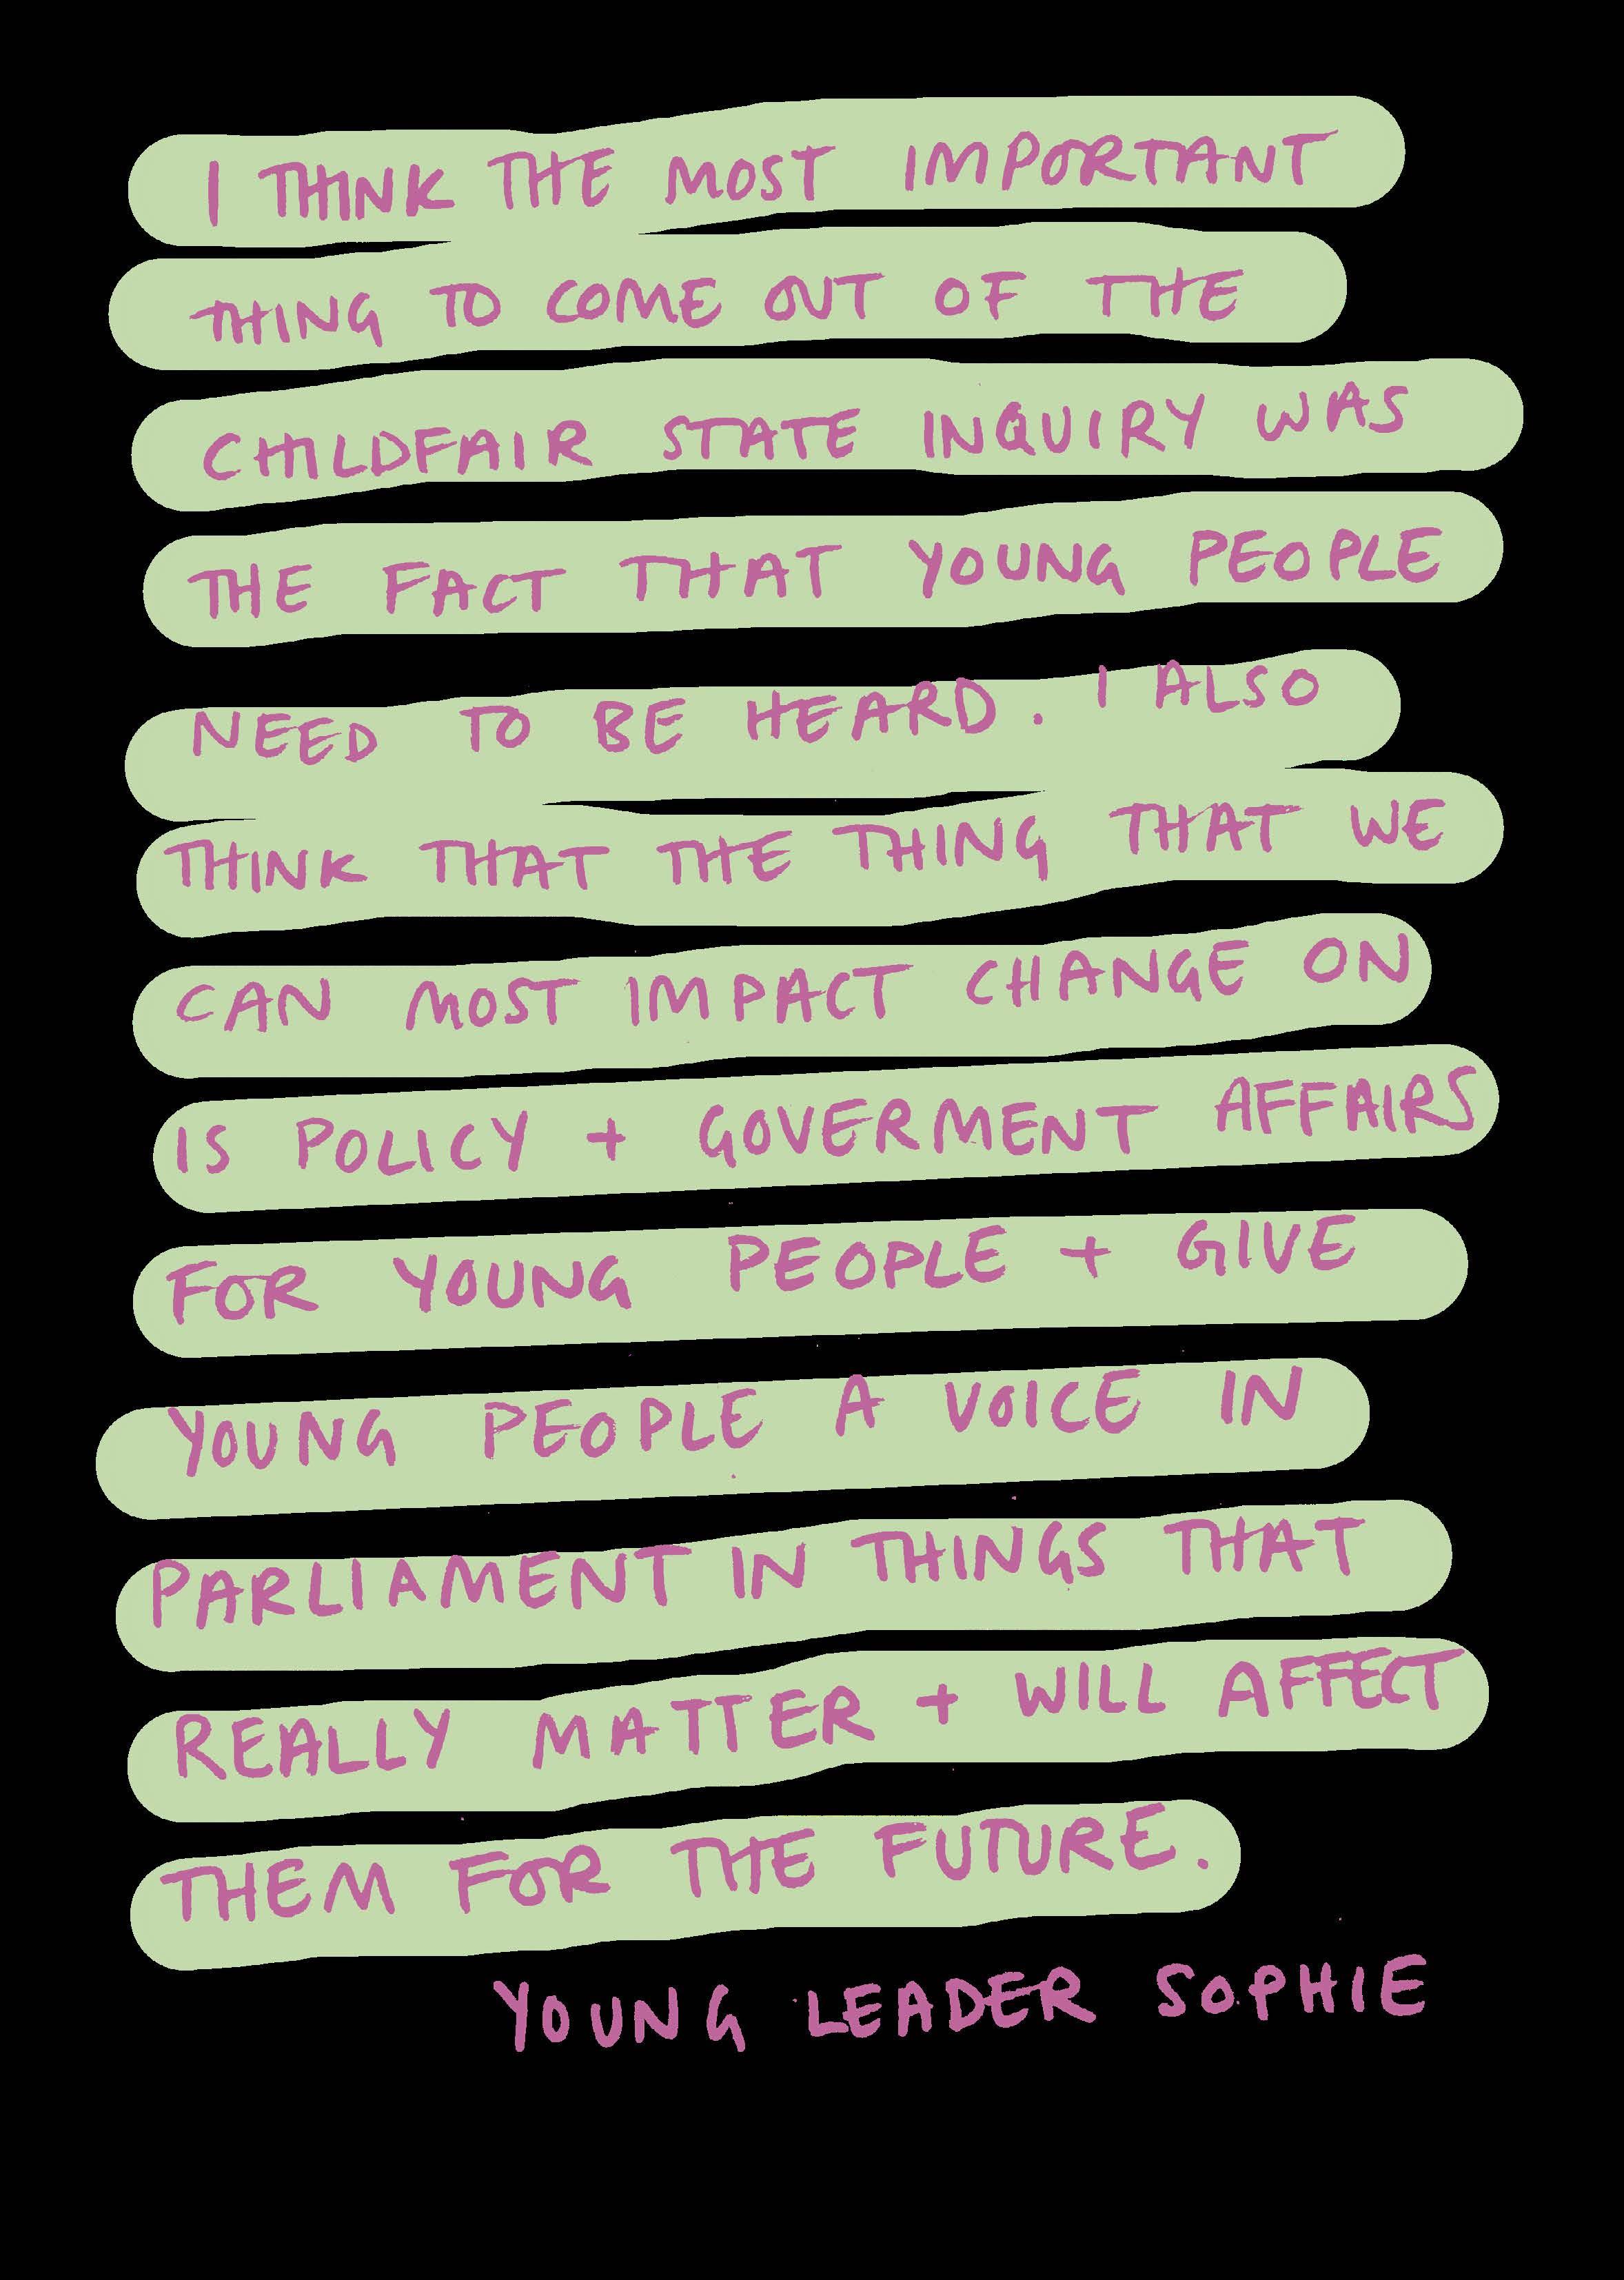 I THINK THE MOST IMPORTANT
THING TO COME OUT OF THE
CHILDFAIR STATE INQUIRY WAS
THE FACT THAT YOUNG PEOPLE
NEED TO BE HEARD. I ALSO
THINK THAT THE THING THAT WE
CAN MOST IMPACT CHANGE ON
IS POLICY + GOVERMENT AFFAIRS
FOR YOUNG PEOPLE + GIVE
YOUNG PEOPLE A VOICE IN
PARLIAMENT IN THINGS THAT
REALLY MATTER + WILL AFFECT
THEM FOR THE FUTURE.
YOUNG LEADER SOPHIE